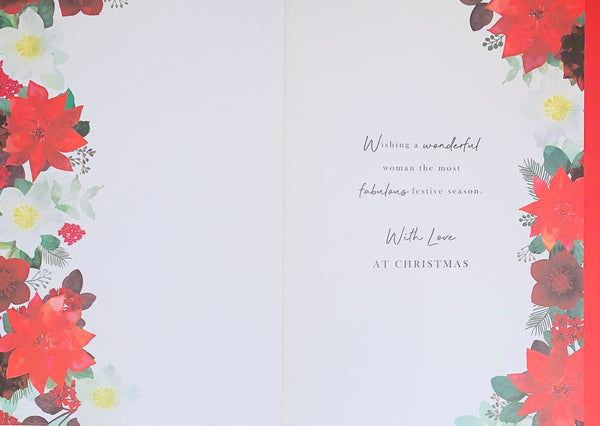 Wishing a wonderful
woman the most
fabulous festive season.
With Love
AT CHRISTMAS